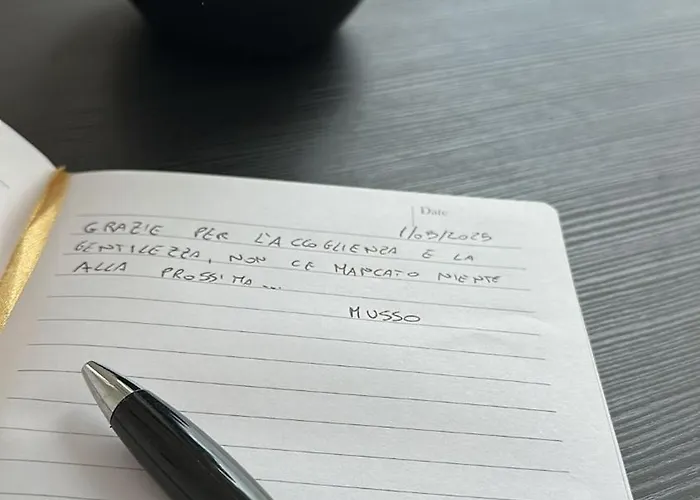 Date
1/05/2025
GRAZIE PER L'ACCOGLIENZA E LA
GENTILEZZA, NON CE MANCATO NIENTE
ALLA PROSSIMA...
MUSSO